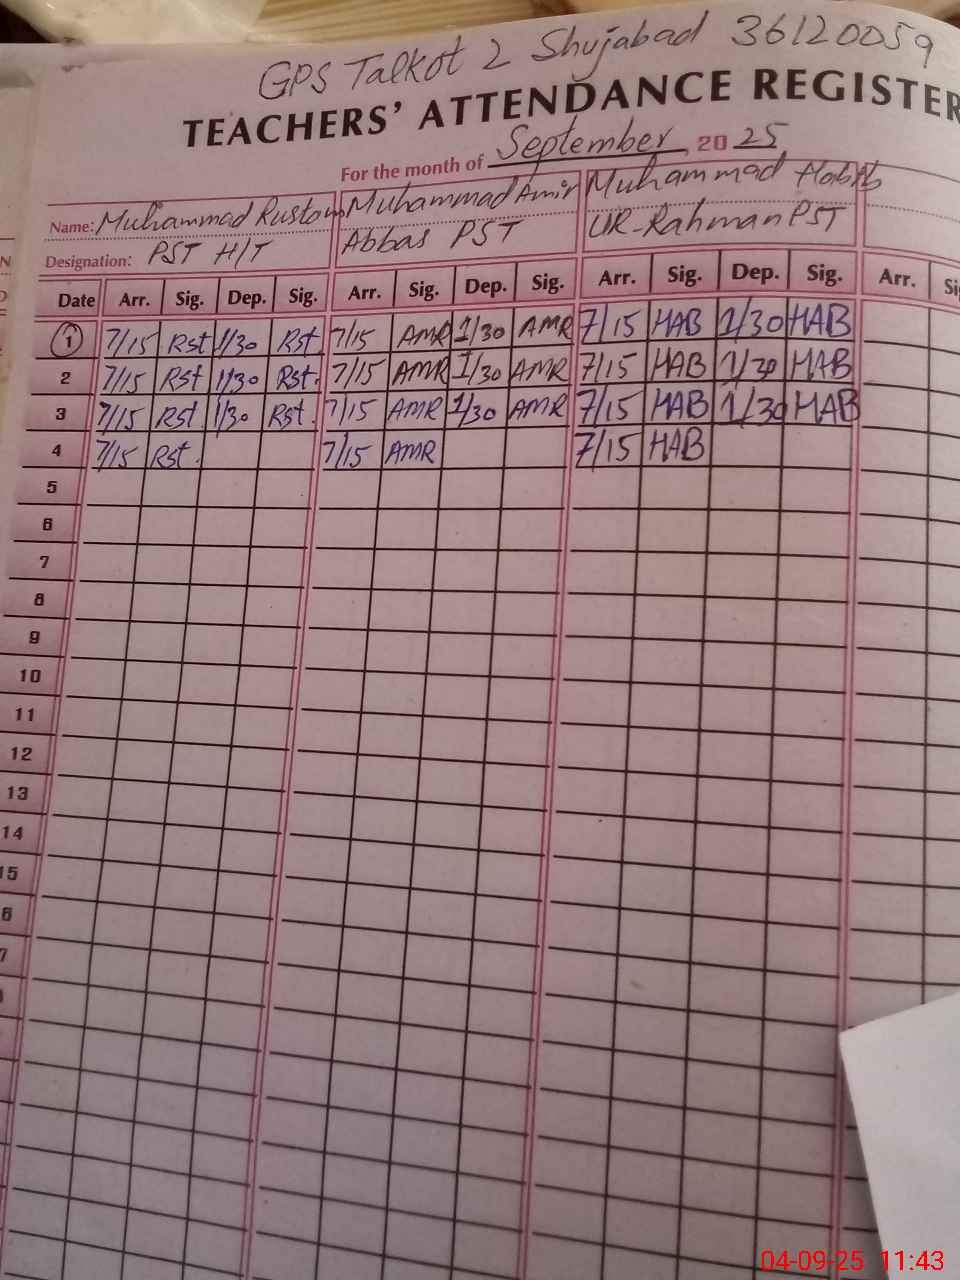 GPS Talkot 2 Shujabad 36120059
TEACHERS' ATTENDANCE REGISTER
For the month of September, 2025
Name: Muhammad Rustam Muhammad Amir Muhammad Habib
Designation: PST H/T Abbas PST UR-Rahman PST
Date Arr. Sig. Dep. Sig. Arr. Sig. Dep. Sig. Arr. Sig. Dep. Sig. Arr.
1 7/15 Rst 1/30 Rst. 7/15 AMR 1/30 AMR 7/15 HAB 1/30 HAB
2 7/15 Rst 1/30 Rst. 7/15 AMR 1/30 AMR 7/15 HAB 1/30 HAB
3 7/15 Rst. 1/30 Rst. 7/15 AMR 1/30 AMR 7/15 HAB 1/30 HAB
4 7/15 Rst. 7/15 AMR 7/15 HAB
5
6
7
8
9
10
11
12
13
14
15
6
7
04-09-25 11:43